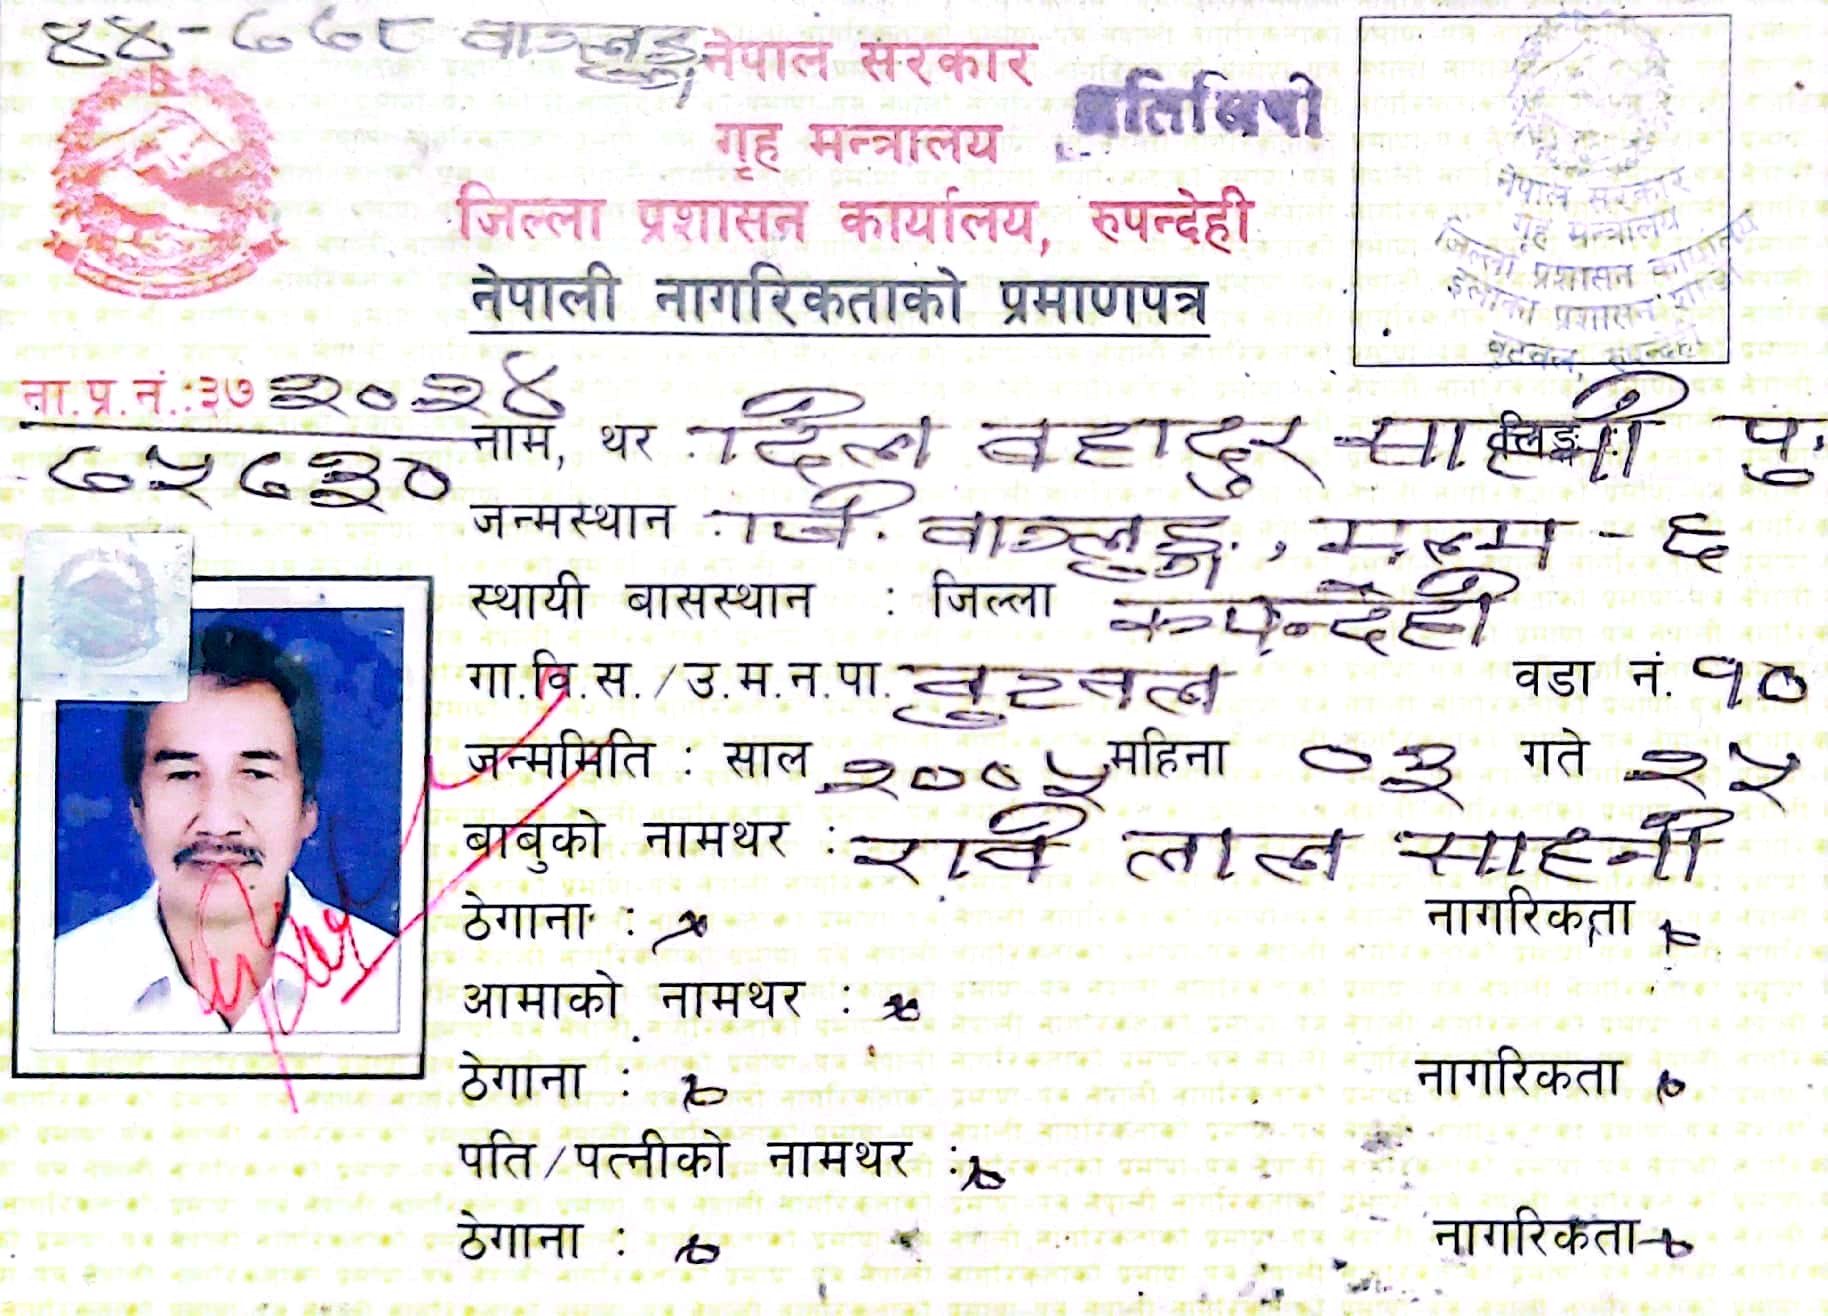 ४४-७७८ वाग्लुङ्ग
नेपाल सरकार
गृह मन्त्रालय
प्रतिलिपी
जिल्ला प्रशासन कार्यालय, रुपन्देही
नेपाली नागरिकताको प्रमाणपत्र
नेपाल सरकार
गृह मन्त्रालय
जिल्ला प्रशासन कार्यालय
इलाका प्रशासन
बुटवल, रुपन्देही
ना.प्र.नं.:३७२०२४
७५७३०
नाम, थर : दिल बहादुर साहनी लिङ्ग: पु.
जन्मस्थान : जि. वाग्लुङ्ग, मल्म - ६
स्थायी बासस्थान : जिल्ला रुपन्देही
गा.वि.स./उ.म.न.पा. बुटवल वडा नं. १०
जन्ममिति : साल २००५ महिना ०३ गते २५
बाबुको नामथर : रवि लाल साहनी
ठेगाना : नागरिकता
आमाको नामथर :
ठेगाना : नागरिकता
पति/पत्नीको नामथर :
ठेगाना : नागरिकता